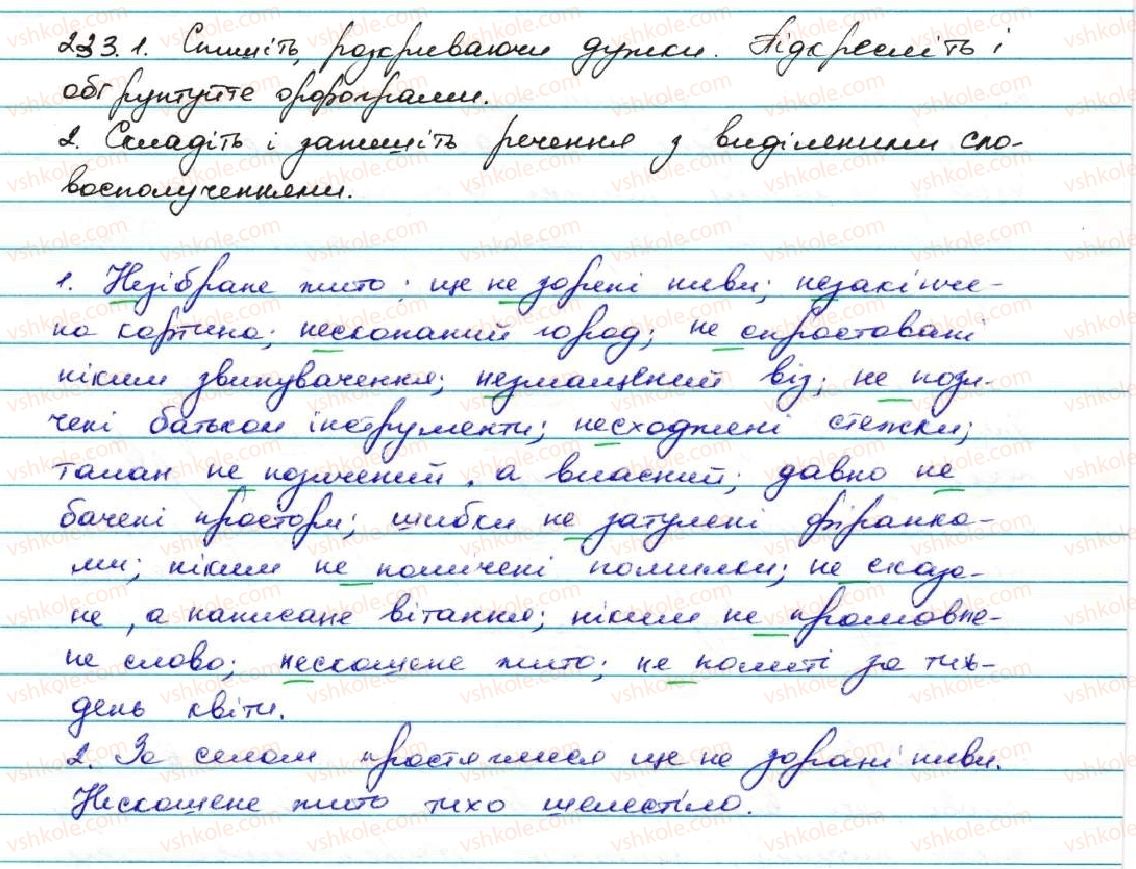 223.1. Спишіть, розкриваючи дужки. Підкресліть і
обґрунтуйте орфограми.
2. Складіть і запишіть речення з виділеними сло-
восполученнями.
1. Незібране жито; ще не зорані ниви; незакінче-
на картина; нескопаний город; не спростовані
ніким звинувачення; незмащений віз; не пози-
чені батьком інструменти; несходжені стежки;
талан не позичений, а власний; давно не
бачені простори; шибки не затулені фіранка-
ми; ніким не помічені помилки; не сказа-
не, а написане вітання; ніким не промовле-
не слово; нескошене жито; не политі за тиж-
день квіти.
2. За селом простяглися ще не зорані ниви.
Нескошене жито тихо шелестіло.
vshkole.com